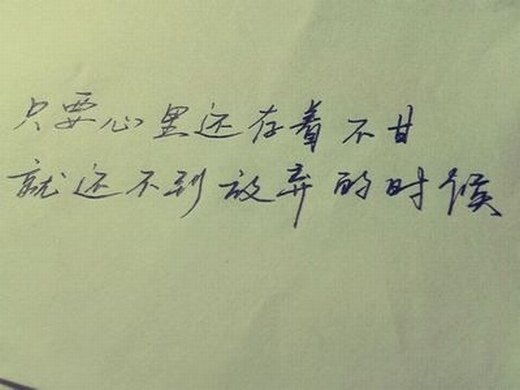 只要心里还存着不甘
就还不到放弃的时候